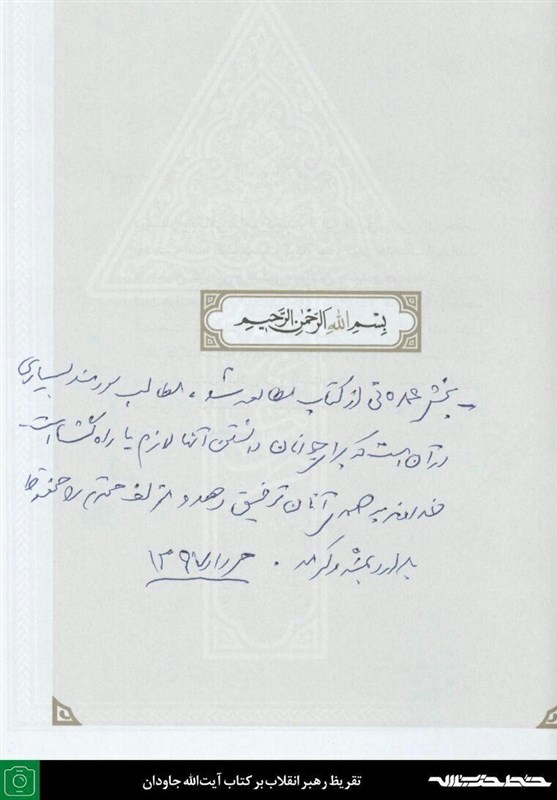 بِسْمِ اللهِ الرَّحْمٰنِ الرَّحیمِ
ـ بخش عمده‌ئی از کتاب مطالعه شد، مطالب سودمند بسیاری
در آن است که برای جوانان دانستن آنها لازم یا راه‌گشا است
خداوند به همه‌ی آنان توفیق دهد و مؤلف محترم را محفوظ
بدارد بمنّه و کرمه .
تقریظ رهبر انقلاب بر کتاب آیت‌الله جاودان
خط حزب‌الله